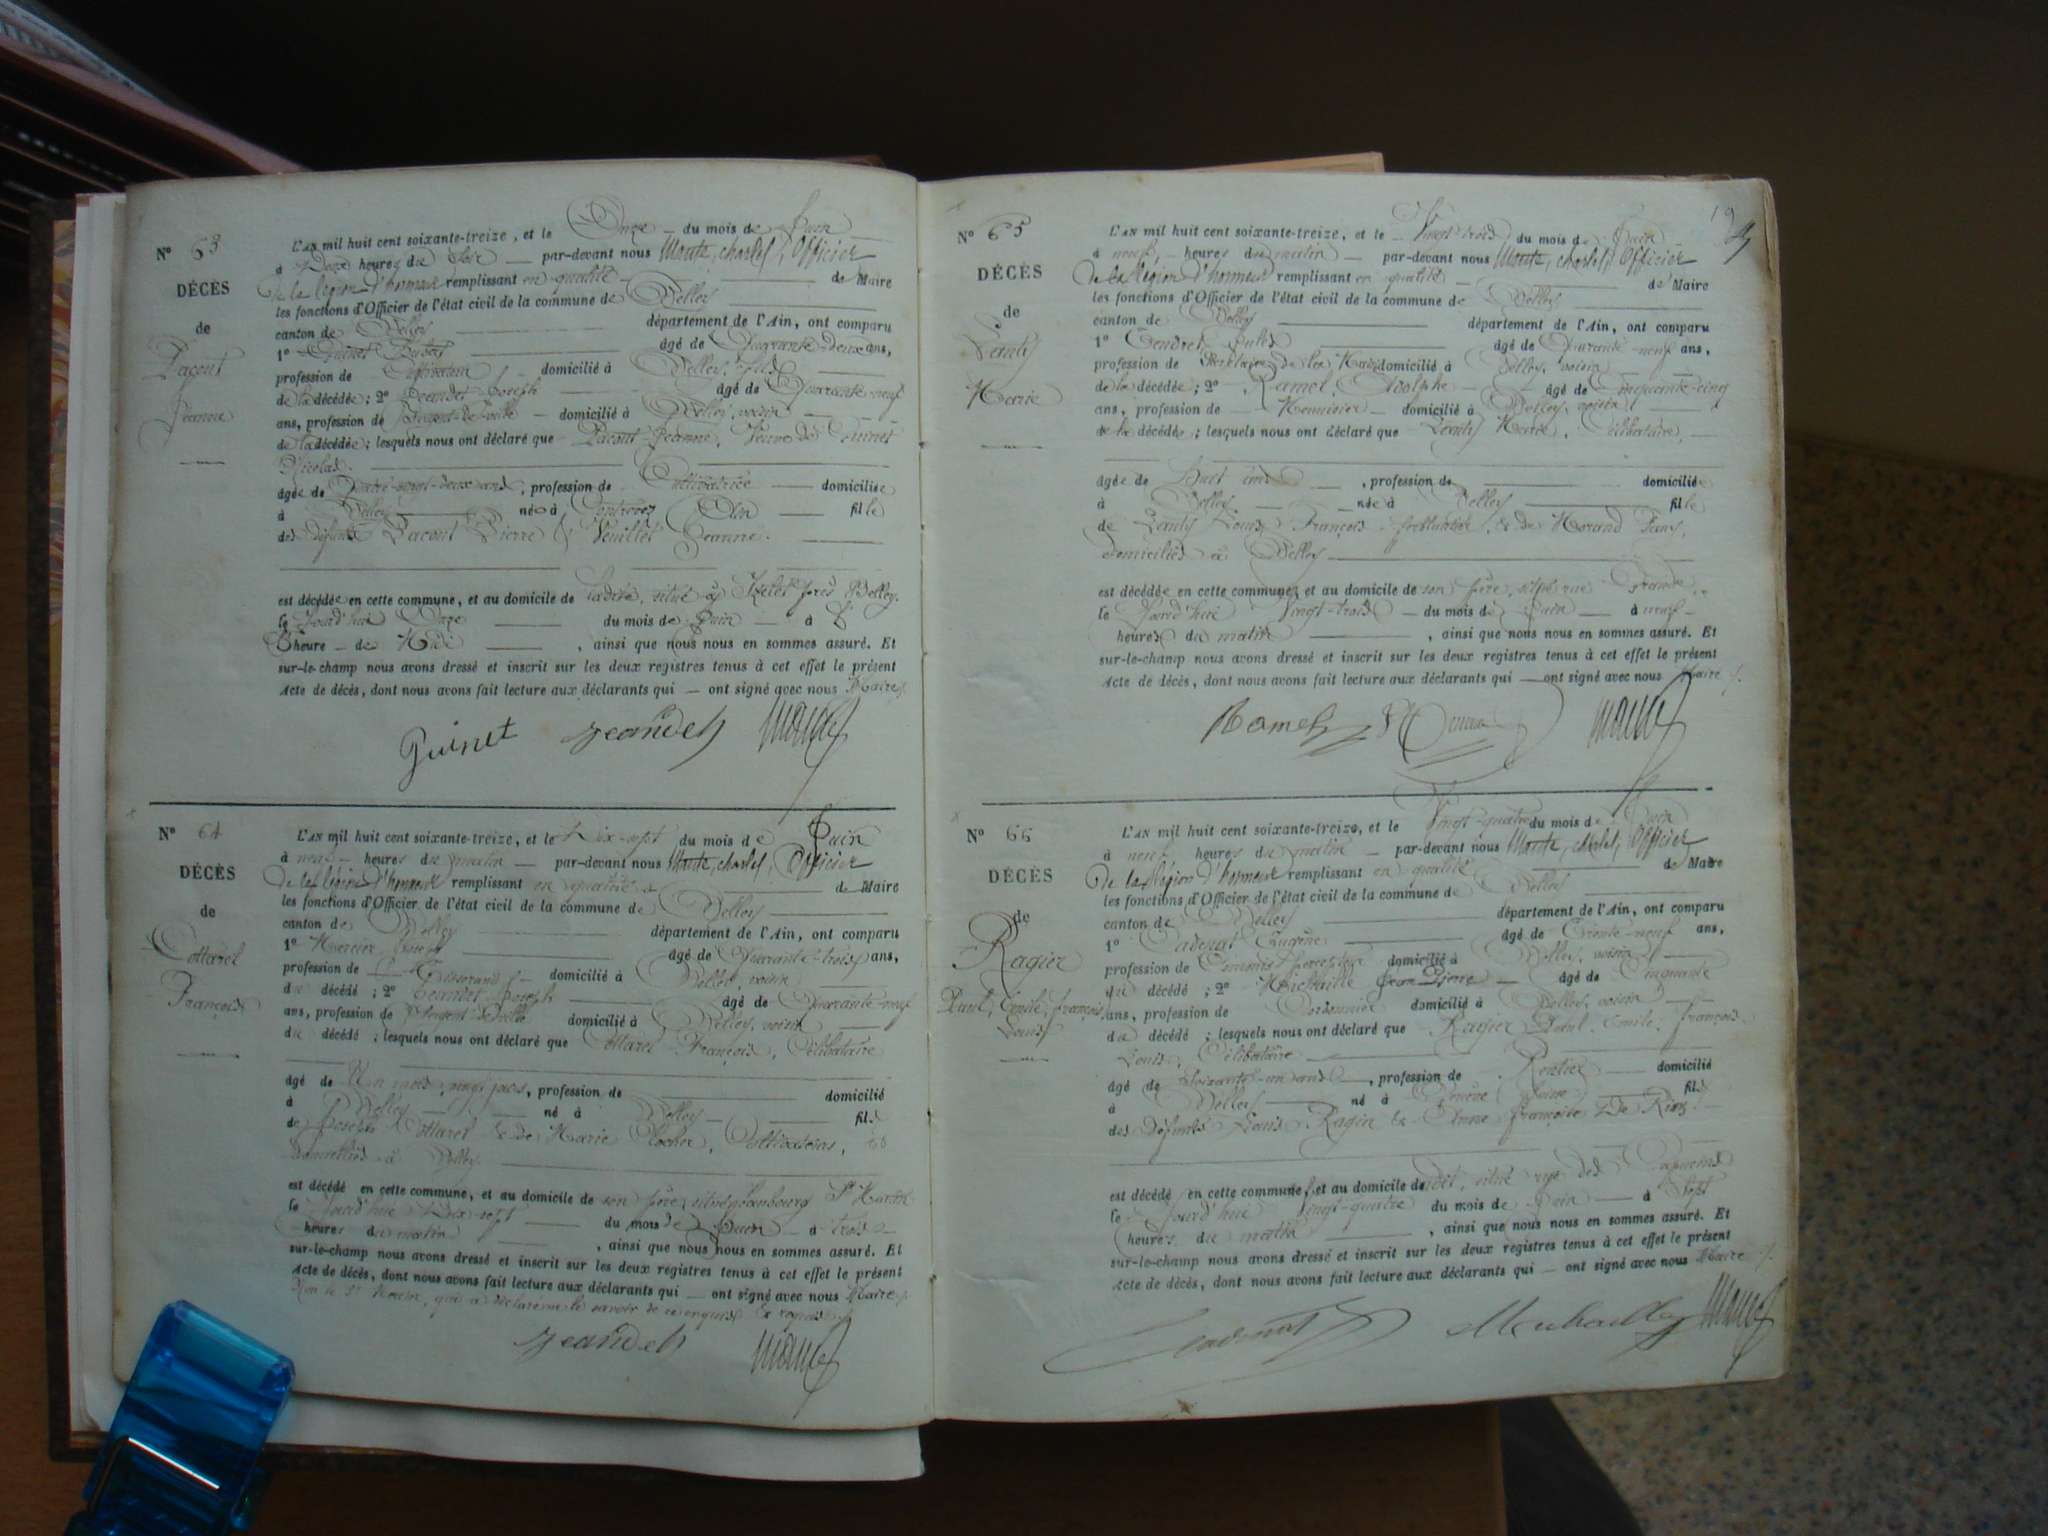 N° 63
DÉCÈS
de
Pacout
Jeanne
L'AN mil huit cent soixante-treize, et le Onze du mois de Juin
à Deux heures du soir par-devant nous charles, Officier
de la légion d'honneur remplissant en qualité de Maire
les fonctions d'Officier de l'état civil de la commune de Belley
canton de Belley département de l'Ain, ont comparu
1° Guinet âgé de Quarante-deux ans,
profession de Cultivateur domicilié à Belley, fils
de la décédée ; 2° Jeandet Joseph âgé de Quarante-neuf
ans, profession de Sergent de ville domicilié à Belley, voisin
de la décédée ; lesquels nous ont déclaré que Pacout Jeanne, Veuve de Guinet
Nicolas.
âgée de Quatre-vingt-deux ans, profession de Cultivatrice domiciliée
à Belley née à Ain fille
des défunts Pacout Pierre & Veuillet Jeanne.
est décédée en cette commune, et au domicile de ladite, situé à près Belley.
le Jourd'hui Onze du mois de Juin à
heure de Midi, ainsi que nous nous en sommes assuré. Et
sur-le-champ nous avons dressé et inscrit sur les deux registres tenus à cet effet le présent
Acte de décès, dont nous avons fait lecture aux déclarants qui ont signé avec nous Maire.
Guinet Jeandet
N° 64
DÉCÈS
de
Cottarel
François
L'AN mil huit cent soixante-treize, et le Dix-sept du mois de Juin
à neuf heures du matin par-devant nous charles, Officier
de la légion d'honneur remplissant en qualité de Maire
les fonctions d'Officier de l'état civil de la commune de Belley
canton de Belley département de l'Ain, ont comparu
1° Mercier âgé de Quarante-trois ans,
profession de domicilié à Belley, voisin
du décédé ; 2° Jeandet Joseph âgé de Quarante-neuf
ans, profession de Sergent de ville domicilié à Belley, voisin
du décédé ; lesquels nous ont déclaré que Cottarel François, Célibataire
âgé de Un mois, vingt jours, profession de domicilié
à Belley né à Belley fils
de Joseph Cottarel & de Marie Rocher, Cultivateurs,
domiciliés à Belley.
est décédé en cette commune, et au domicile de son père, situé faubourg St Martin
le Jourd'hui Dix-sept du mois de Juin à trois
heures du matin, ainsi que nous nous en sommes assuré. Et
sur-le-champ nous avons dressé et inscrit sur les deux registres tenus à cet effet le présent
Acte de décès, dont nous avons fait lecture aux déclarants qui ont signé avec nous Maire
Non le Sr Mercier, qui a déclaré ne le savoir de ce enquis & requis
Jeandet
19
N° 65
DÉCÈS
de
Marie
L'AN mil huit cent soixante-treize, et le Vingt-trois du mois de Juin
à neuf heures du matin par-devant nous charles, Officier
de la légion d'honneur remplissant en qualité de Maire
les fonctions d'Officier de l'état civil de la commune de Belley
canton de Belley département de l'Ain, ont comparu
1° Tendret Jules âgé de Quarante-neuf ans,
profession de Secrétaire de la Mairie domicilié à Belley, voisin
de la décédée ; 2° Ramel, Adolphe âgé de Cinquante-cinq
ans, profession de Menuisier domicilié à Belley, voisin
de la décédée ; lesquels nous ont déclaré que Marie, Célibataire,
âgée de Huit ans, profession de domiciliée
à Belley née à Belley fille
de Louis François, ferblantier, & de Morand
domiciliés à Belley
est décédée en cette commune, et au domicile de son père, situé rue Grande
le Jourd'hui Vingt-trois du mois de Juin à neuf
heures du matin, ainsi que nous nous en sommes assuré. Et
sur-le-champ nous avons dressé et inscrit sur les deux registres tenus à cet effet le présent
Acte de décès, dont nous avons fait lecture aux déclarants qui ont signé avec nous Maire.
Ramel
N° 66
DÉCÈS
de
Ragier
Paul, Emile, François,
Louis
L'AN mil huit cent soixante-treize, et le Vingt-quatre du mois de Juin
à neuf heures du matin par-devant nous charles, Officier
de la légion d'honneur remplissant en qualité de Maire
les fonctions d'Officier de l'état civil de la commune de Belley
canton de Belley département de l'Ain, ont comparu
1° Cadenat Eugène âgé de Trente-neuf ans,
profession de domicilié à Belley, voisin
du décédé ; 2° Michaille Jean Pierre âgé de Cinquante
ans, profession de Cordonnier domicilié à Belley, voisin
du décédé ; lesquels nous ont déclaré que Ragier Paul, Emile, François
Louis, Célibataire
âgé de Soixante-un ans, profession de Rentier domicilié
à Belley né à Genève Suisse fils
des défunts Louis Ragier & Anne Françoise De
est décédé en cette commune, et au domicile dudit, situé rue des Capucins
le Jourd'hui Vingt-quatre du mois de Juin à Sept
heures du matin, ainsi que nous nous en sommes assuré. Et
sur-le-champ nous avons dressé et inscrit sur les deux registres tenus à cet effet le présent
Acte de décès, dont nous avons fait lecture aux déclarants qui ont signé avec nous Maire.
Cadenat